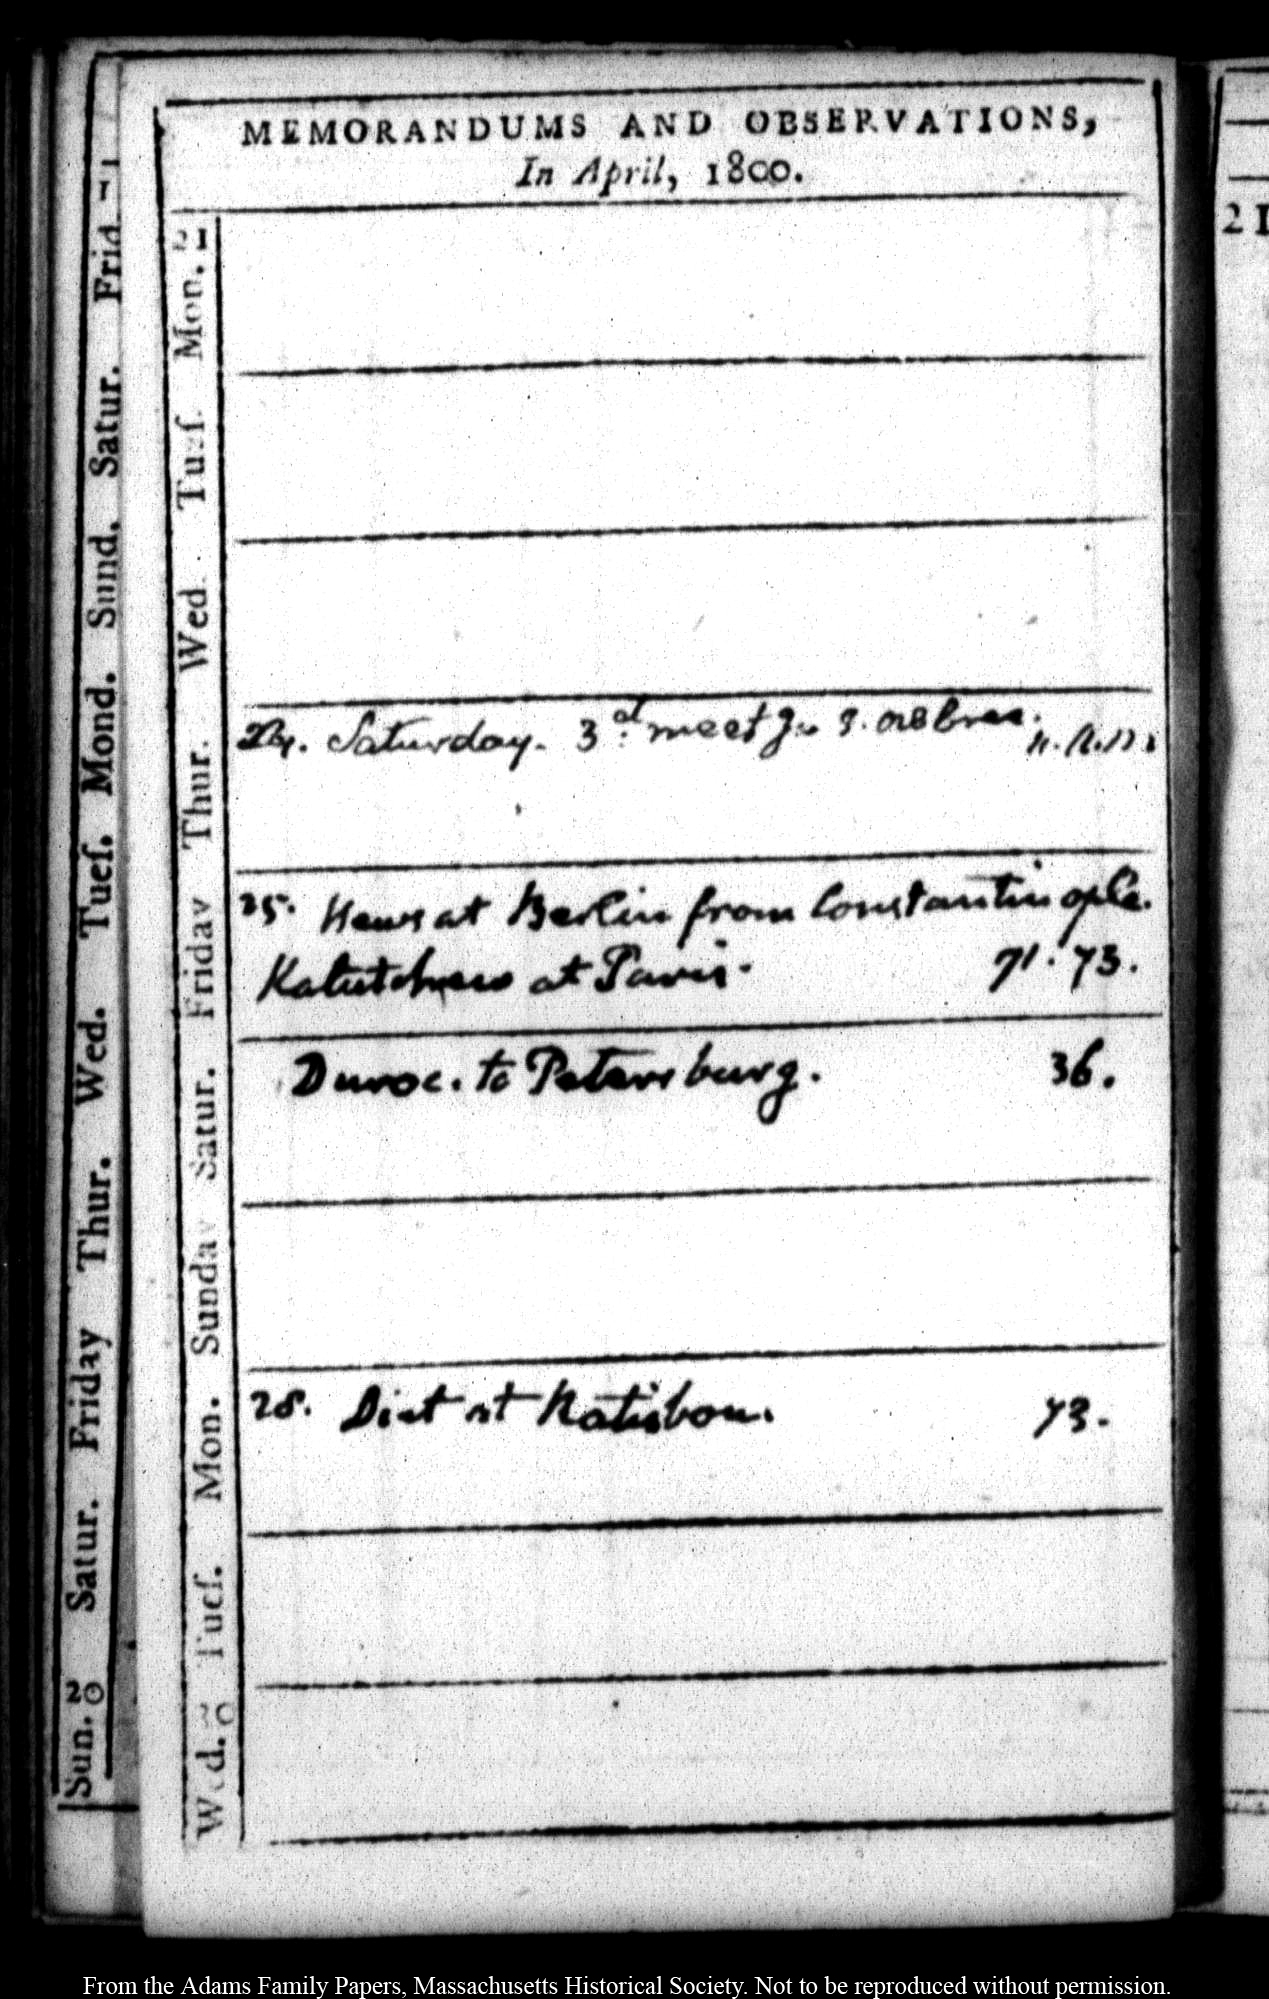 MEMORANDUMS AND OBSERVATIONS,
In April, 1800.
21
Mon.
Tuſ.
Wed.
Thur.
Friday
Satur.
Sunday
Mon.
Tueſ.
Wed. 30
24. Saturday. 3d. meet
25. News at Berlin from Constantinople.
at Paris. 71. 73.
Duroc. to Petersburg. 36.
28. Diet at Ratisbon. 73.
Frid
Satur.
Sund.
Mond.
Tueſ.
Wed.
Thur.
Friday
Satur.
Sun. 20
21
From the Adams Family Papers, Massachusetts Historical Society. Not to be reproduced without permission.